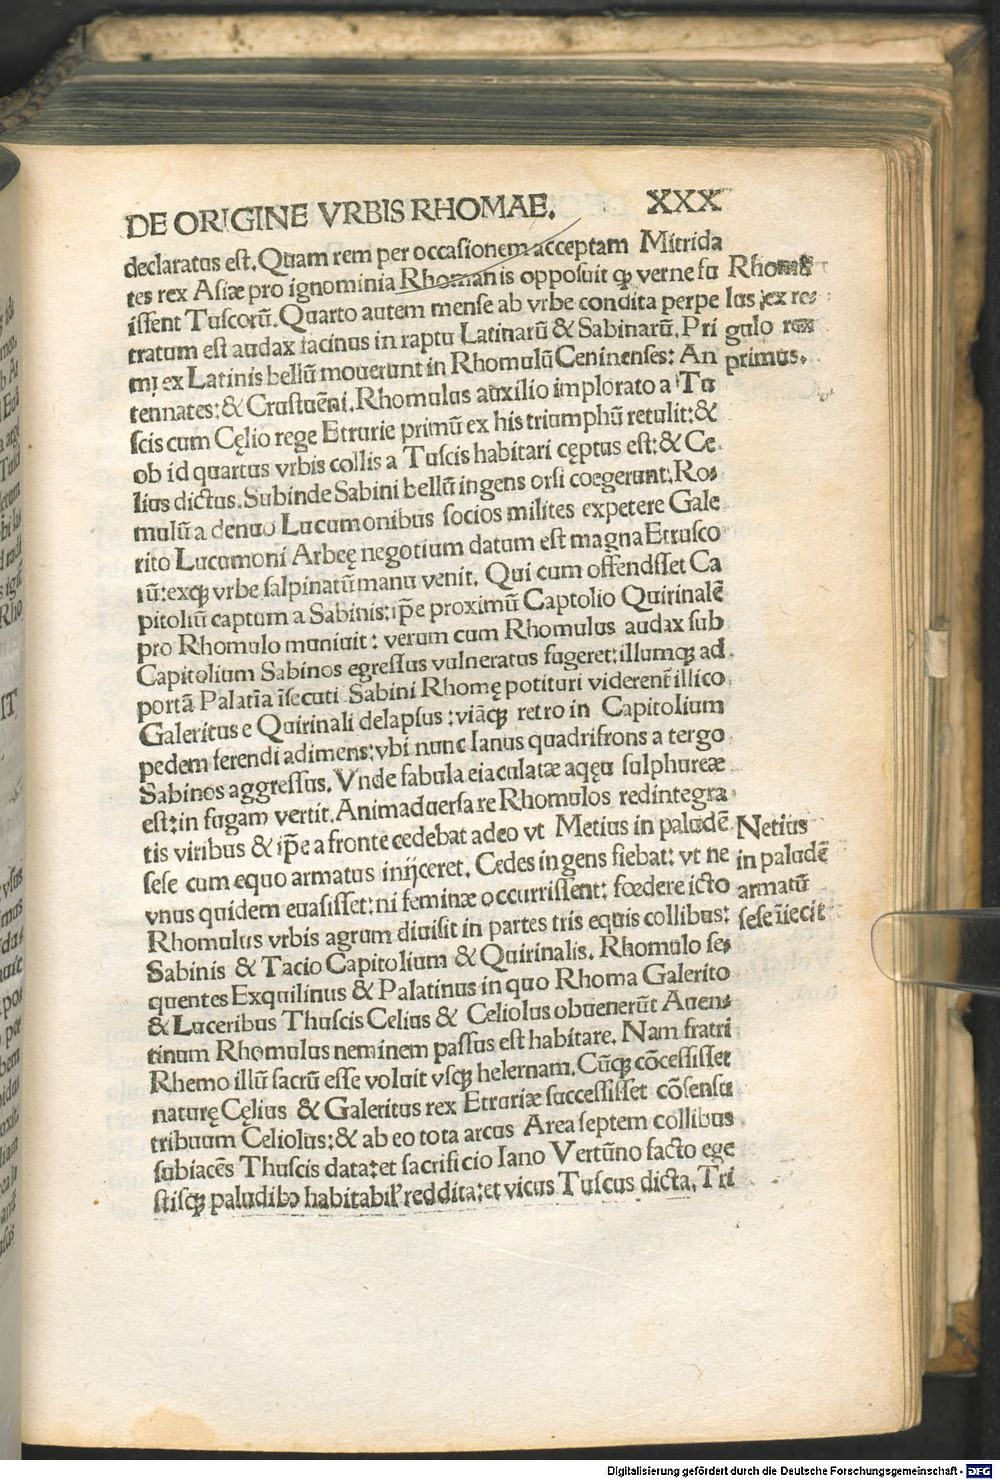 DE ORIGINE VRBIS RHOMAE. XXX
declaratus est. Quam rem per occasionem acceptam Mitrida
tes rex Asiæ pro ignominia Rhomanis opposuit ꝙ verne fu
issent Tuscorũ. Quarto autem mense ab vrbe condita perpe
tratum est audax facinus in raptu Latinarũ & Sabinarũ. Pri
mi ex Latinis bellũ mouerunt in Rhomulũ Ceninenses: An
tennates: & Crustuẽni. Rhomulus auxilio implorato a Tu
scis cum Cęlio rege Etrurie primũ ex his triumphũ retulit: &
ob id quartus vrbis collis a Tuscis habitari cęptus est: & Ce
lius dictus. Subinde Sabini bellũ ingens orsi coegerunt. Ro⸗
mulũ a denuo Lucumonibus socios milites expetere Gale
rito Lucumoni Arbeę negotium datum est magna Etrusco
rũ: exqꝫ vrbe salpinatũ manu venit. Qui cum offendsset Ca
pitoliũ captum a Sabinis: ip̃e proximũ Captolio Quirinalẽ
pro Rhomulo muniuit: verum cum Rhomulus audax sub
Capitolium Sabinos egressus vulneratus fugeret: illumqꝫ ad
portã Palatĩa ĩsecuti Sabini Rhomę potituri viderent̃ illico
Galeritus e Quirinali delapsus: viãqꝫ retro in Capitolium
pedem ferendi adimens: vbi nunc Ianus quadrifrons a tergo
Sabinos aggressus. Vnde fabula eiaculatæ aqęu sulphureæ
est: in fugam vertit. Animaduersa re Rhomulos redintegra
tis viribus & ip̃e a fronte cedebat adeo vt Metius in paludẽ
sese cum equo armatus inijceret. Cedes ingens fiebat: vt ne
vnus quidem euasisset: ni feminæ occurrissent: fœdere icto
Rhomulus vrbis agrum diuisit in partes tris equis collibus:
Sabinis & Tacio Capitolium & Quirinalis. Rhomulo se⸗
quentes Exquilinus & Palatinus in quo Rhoma Galerito
& Luceribus Thuscis Celius & Celiolus obuenerũt Auen⸗
tinum Rhomulus neminem passus est habitare. Nam fratri
Rhemo illũ sacrũ esse voluit vsqꝫ helernam. Cũqꝫ cõcessisset
naturę Cęlius & Galeritus rex Etruriæ successisset cõsensu
tribuum Celiolus: & ab eo tota arcus Area septem collibus
subiacẽs Thuscis data: et sacrificio Iano Vertũno facto ege
stisqꝫ paludibꝰ habitabil' reddita: et vicus Tuscus dicta. Tri
Rhomu
lus ex re⸗
gulo rex
primus.
Netius
in paludẽ
armatũ
sese ĩiecit
Digitalisierung gefördert durch die Deutsche Forschungsgemeinschaft - DFG